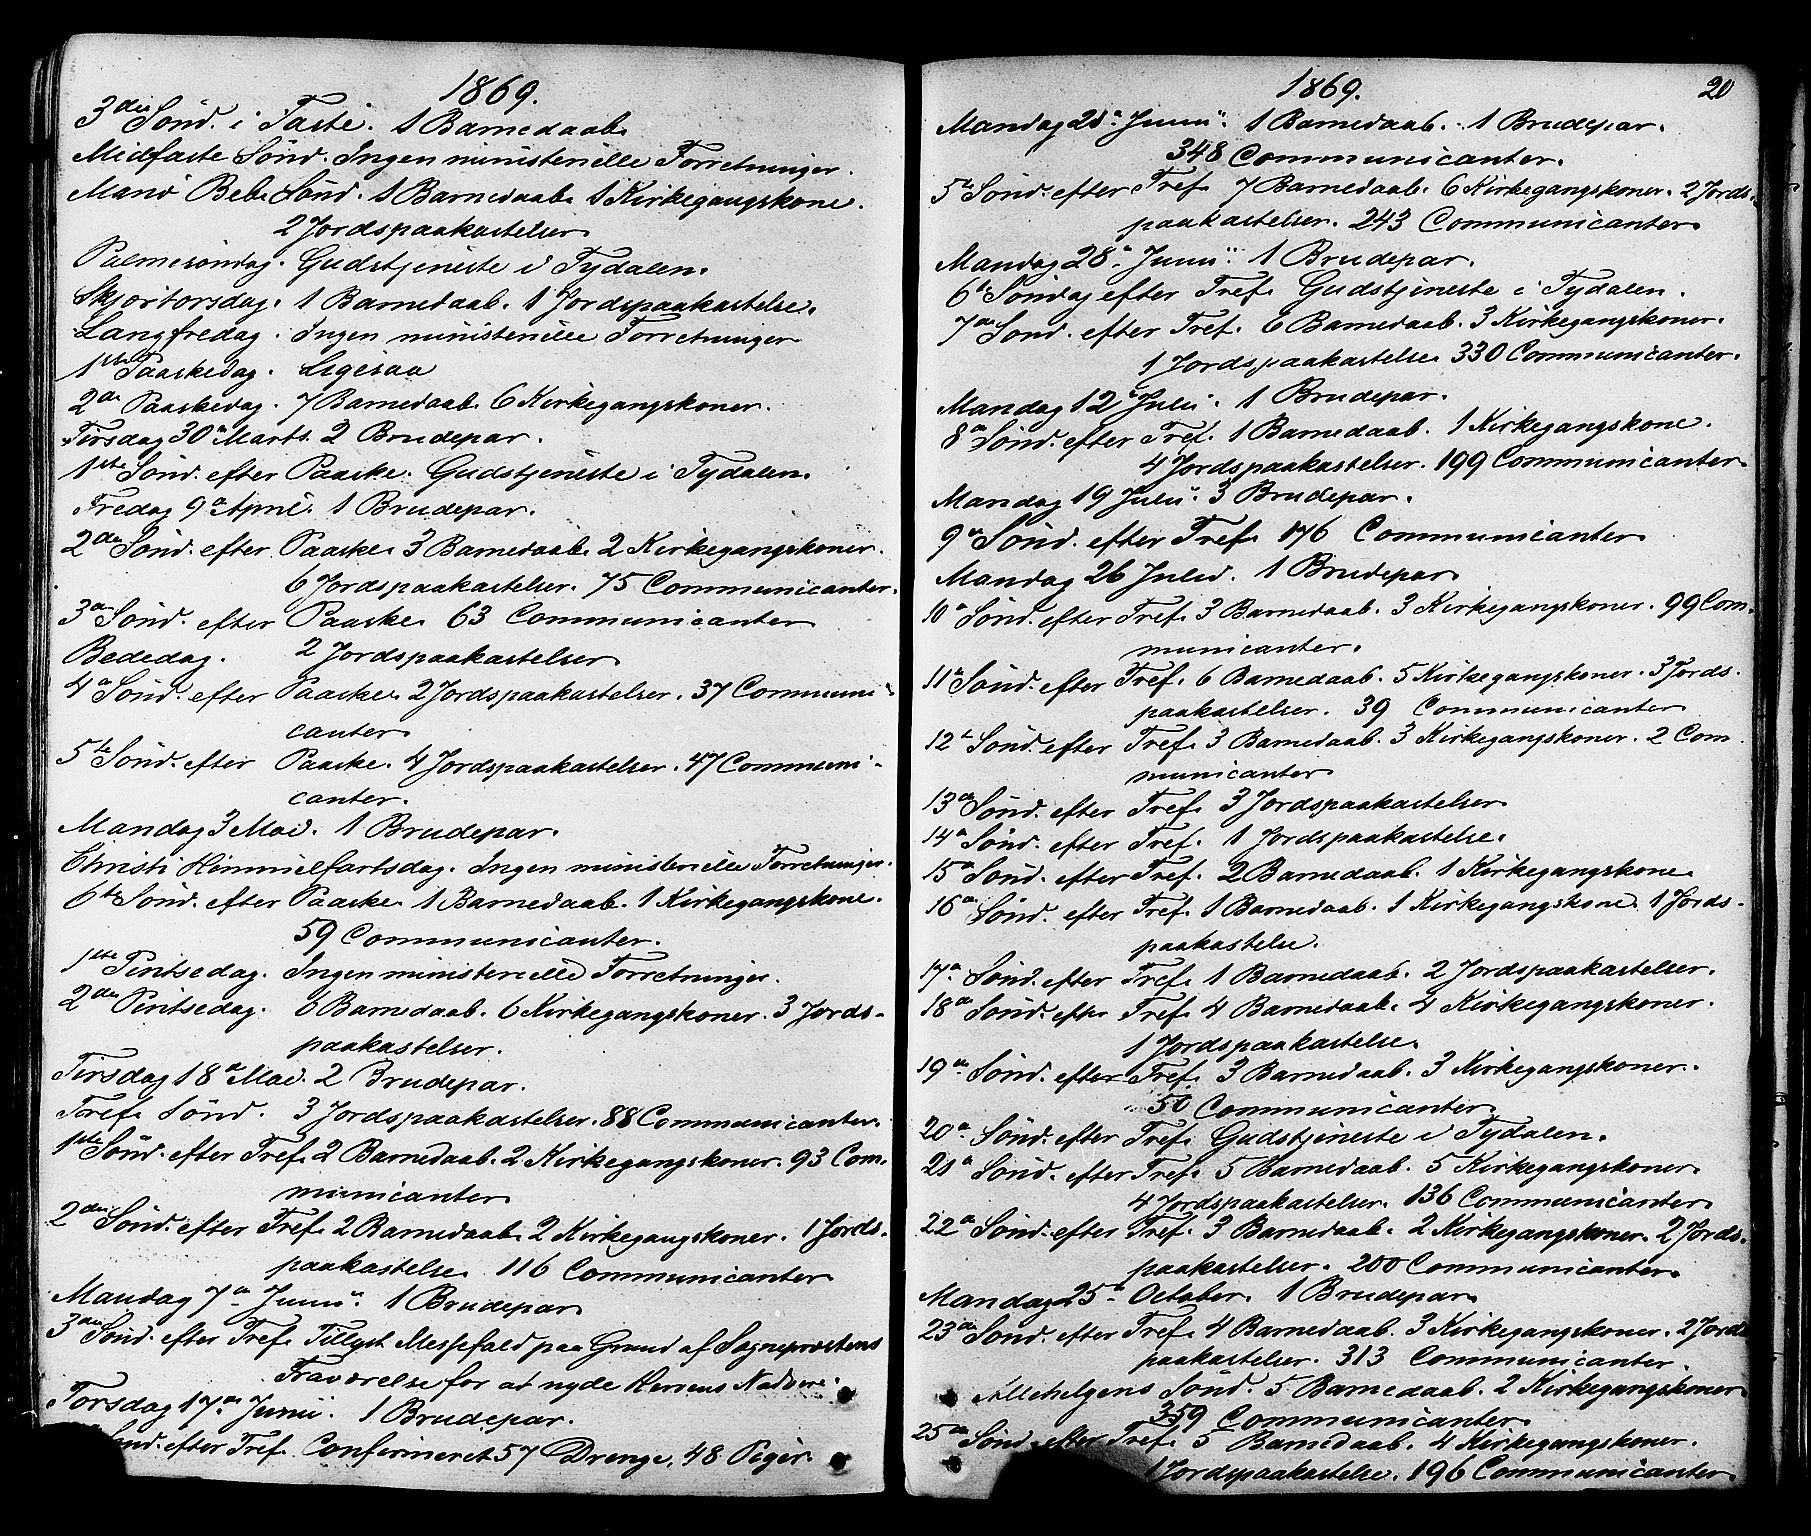 1869.
3die Sönd. i Faste. 1 Barnedaab.
Midfaste Sönd. Ingen ministerielle Forretninger.
Mariæ Beb. Sönd. 1 Barnedaab. 1 Kirkegangskone.
2 Jordspaakastelser.
Palmesöndag. Gudstjeneste i Tydalen.
Skjærtorsdag. 1 Barnedaab. 1 Jordspaakastelse.
Langfredag. Ingen ministerielle Forretninger
1ste Paaskedag. Ligesaa
2den Paaskedag. 7 Barnedaab. 6 Kirkegangskoner.
Tirsdag 30te Marts. 2 Brudepar.
1ste Sönd. efter Paaske. Gudstjeneste i Tydalen.
Fredag 9de April. 1 Brudepar.
2den Sönd. efter Paaske. 3 Barnedaab. 2 Kirkegangskoner.
6 Jordspaakastelser. 75 Communicanter.
3die Sönd. efter Paaske. 63 Communicanter
Bededag. 2 Jordspaakastelser.
4de Sönd. efter Paaske. 2 Jordspaakastelser. 37 Communi-
canter.
5te Sönd. efter Paaske. 4 Jordspaakastelser. 47 Communi-
canter.
Mandag 3 Mai. 1 Brudepar.
Christi Himmelfartsdag. Ingen ministerielle Forretninger.
6te Sönd. efter Paaske. 1 Barnedaab. 1 Kirkegangskone.
59 Communicanter.
1ste Pintsedag. Ingen ministerielle Forretninger.
2den Pintsedag. 6 Barnedaab. 6 Kirkegangskoner. 3 Jords-
paakastelser.
Tirsdag 18de Mai. 2 Brudepar.
Tref. Sönd. 3 Jordspaakastelser. 88 Communicanter.
1ste Sönd. efter Tref. 2 Barnedaab. 2 Kirkegangskoner. 93 Com-
municanter
2den Sönd. efter Tref. 2 Barnedaab. 2 Kirkegangskoner. 1 Jords-
paakastelse. 116 Communicanter
Mandag 7de Junii. 1 Brudepar
3die Sönd. efter Tref. Tillyst Messefald paa Grund af Sognepræstens
Fraværelse for at nyde Herrens Nadvere.
Torsdag 17de Junii. 1 Brudepar.
Sönd. efter Tref. Confirmeret 57 Drenge, 48 Piger.
1869.
20
Mandag 21de Junii. 1 Barnedaab. 1 Brudepar.
348 Communicanter.
5te Sönd. efter Tref. 7 Barnedaab. 6 Kirkegangskoner. 2 Jords-
paakastelser. 243 Communicanter.
Mandag 28de Junii. 1 Brudepar.
6te Söndag efter Tref. Gudstjeneste i Tydalen.
7de Sönd. efter Tref. 6 Barnedaab. 3 Kirkegangskoner.
1 Jordspaakastelse. 330 Communicanter.
Mandag 12te Julii. 1 Brudepar.
8de Sönd. efter Tref. 1 Barnedaab. 1 Kirkegangskone.
4 Jordspaakastelser. 199 Communicanter.
Mandag 19 Julii. 3 Brudepar.
9de Sönd. efter Tref. 176 Communicanter.
Mandag 26 Julii. 1 Brudepar.
10de Sönd. efter Tref. 3 Barnedaab. 3 Kirkegangskoner. 99 Com-
municanter.
11te Sönd. efter Tref. 6 Barnedaab. 5 Kirkegangskoner. 3 Jords-
paakastelser. 39 Communicanter
12te Sönd. efter Tref. 3 Barnedaab. 3 Kirkegangskoner. 2 Com-
municanter
13de Sönd. efter Tref. 3 Jordspaakastelser
14de Sönd. efter Tref. 1 Jordspaakastelse.
15de Sönd. efter Tref. 2 Barnedaab. 1 Kirkegangskone
16de Sönd. efter Tref. 1 Barnedaab. 1 Kirkegangskone. 1 Jords-
paakastelse.
17de Sönd. efter Tref. 1 Barnedaab. 2 Jordspaakastelser.
18de Sönd. efter Tref. 4 Barnedaab. 4 Kirkegangskoner.
1 Jordspaakastelse.
19de Sönd. efter Tref. 3 Barnedaab. 3 Kirkegangskoner.
50 Communicanter.
20de Sönd. efter Tref. Gudstjeneste i Tydalen.
21de Sönd. efter Tref. 5 Barnedaab. 5 Kirkegangskoner.
4 Jordspaakastelser. 136 Communicanter
22de Sönd. efter Tref. 3 Barnedaab. 2 Kirkegangskoner. 2 Jords-
paakastelser. 200 Communicanter.
Mandag 25de October. 1 Brudepar.
23de Sönd. efter Tref. 4 Barnedaab. 3 Kirkegangskoner. 2 Jords
paakastelser. 313 Communicanter.
Allehelgens Sönd. 5 Barnedaab. 2 Kirkegangskoner
359 Communicanter.
25de Sönd. efter Tref. 5 Barnedaab. 4 Kirkegangskoner.
1 Jordspaakastelse. 196 Communicanter.